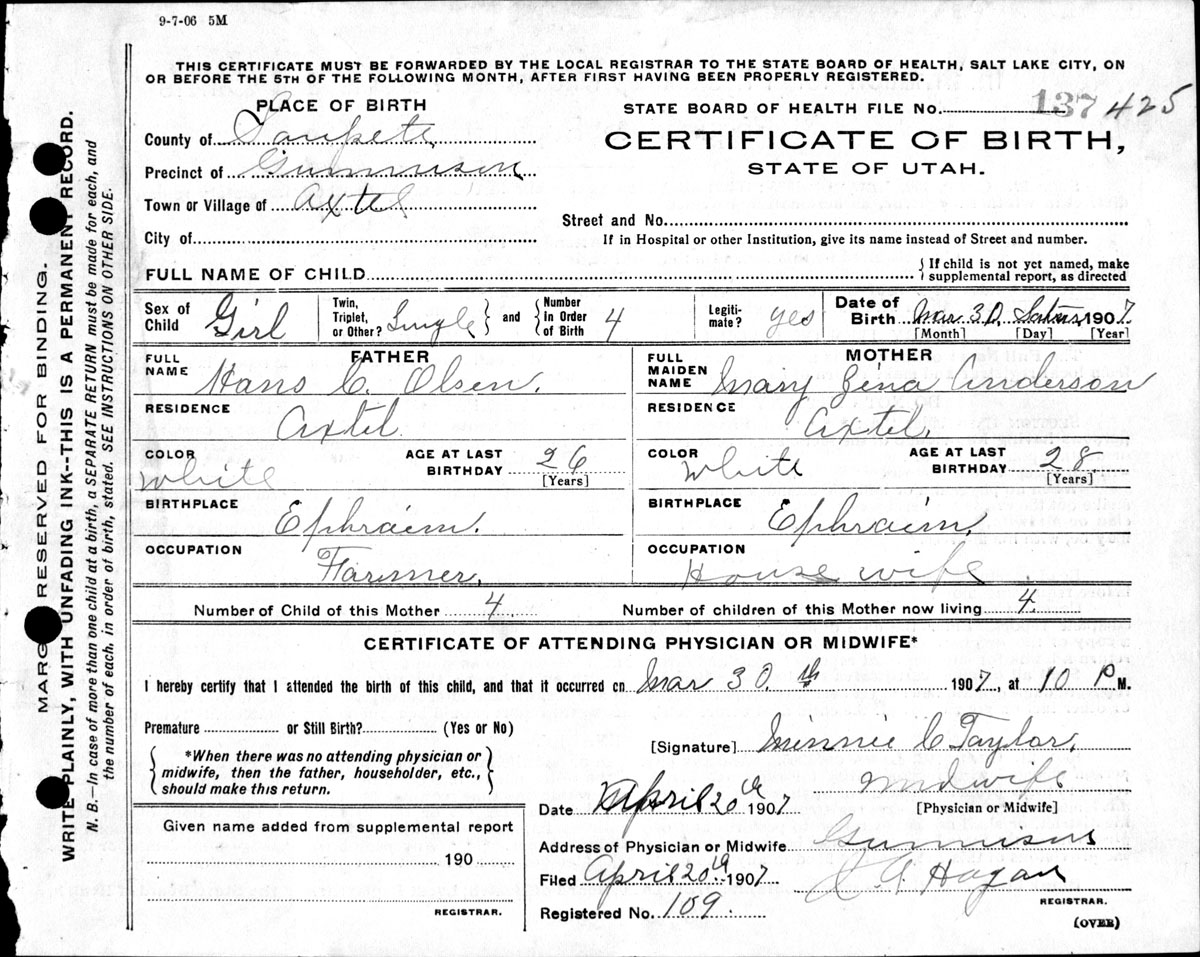 9-7-06 5M
THIS CERTIFICATE MUST BE FORWARDED BY THE LOCAL REGISTRAR TO THE STATE BOARD OF HEALTH, SALT LAKE CITY, ON
OR BEFORE THE 5TH OF THE FOLLOWING MONTH, AFTER FIRST HAVING BEEN PROPERLY REGISTERED.
PLACE OF BIRTH
County of Sanpete
Precinct of Gunnison
Town or Village of Axtel
City of
STATE BOARD OF HEALTH FILE No. 137 425
CERTIFICATE OF BIRTH,
STATE OF UTAH.
Street and No.
If in Hospital or other Institution, give its name instead of Street and number.
FULL NAME OF CHILD { If child is not yet named, make supplemental report, as directed
Sex of Child Girl Twin, Triplet, or Other? Single } and { Number in Order of Birth 4 Legiti-mate? yes Date of Birth Mar 30, Satur, 1907
[Month] [Day] [Year]
FATHER
FULL NAME Hans C. Olsen.
RESIDENCE Axtel
COLOR White AGE AT LAST BIRTHDAY 26
[Years]
BIRTHPLACE Ephraim.
OCCUPATION Farmer.
MOTHER
FULL MAIDEN NAME Mary Zina Anderson
RESIDENCE Axtel.
COLOR White AGE AT LAST BIRTHDAY 28
[Years]
BIRTHPLACE Ephraim.
OCCUPATION House wife
Number of Child of this Mother 4 Number of children of this Mother now living 4
CERTIFICATE OF ATTENDING PHYSICIAN OR MIDWIFE*
I hereby certify that I attended the birth of this child, and that it occurred on Mar 30.th 1907, at 10 P M.
Premature or Still Birth? (Yes or No)
*When there was no attending physician or
midwife, then the father, householder, etc.,
should make this return.
[Signature] Minnie C Taylor,
Midwife
[Physician or Midwife]
Date April 20th 1907
Address of Physician or Midwife Gunnison
Filed April 20th 1907 A Hagan
REGISTRAR.
Registered No. 109.
(OVER)
Given name added from supplemental report
190
REGISTRAR.
MARGIN RESERVED FOR BINDING.
WRITE PLAINLY, WITH UNFADING INK--THIS IS A PERMANENT RECORD.
N. B.—In case of more than one child at a birth, a SEPARATE RETURN must be made for each, and
the number of each, in order of birth, stated. SEE INSTRUCTIONS ON OTHER SIDE.